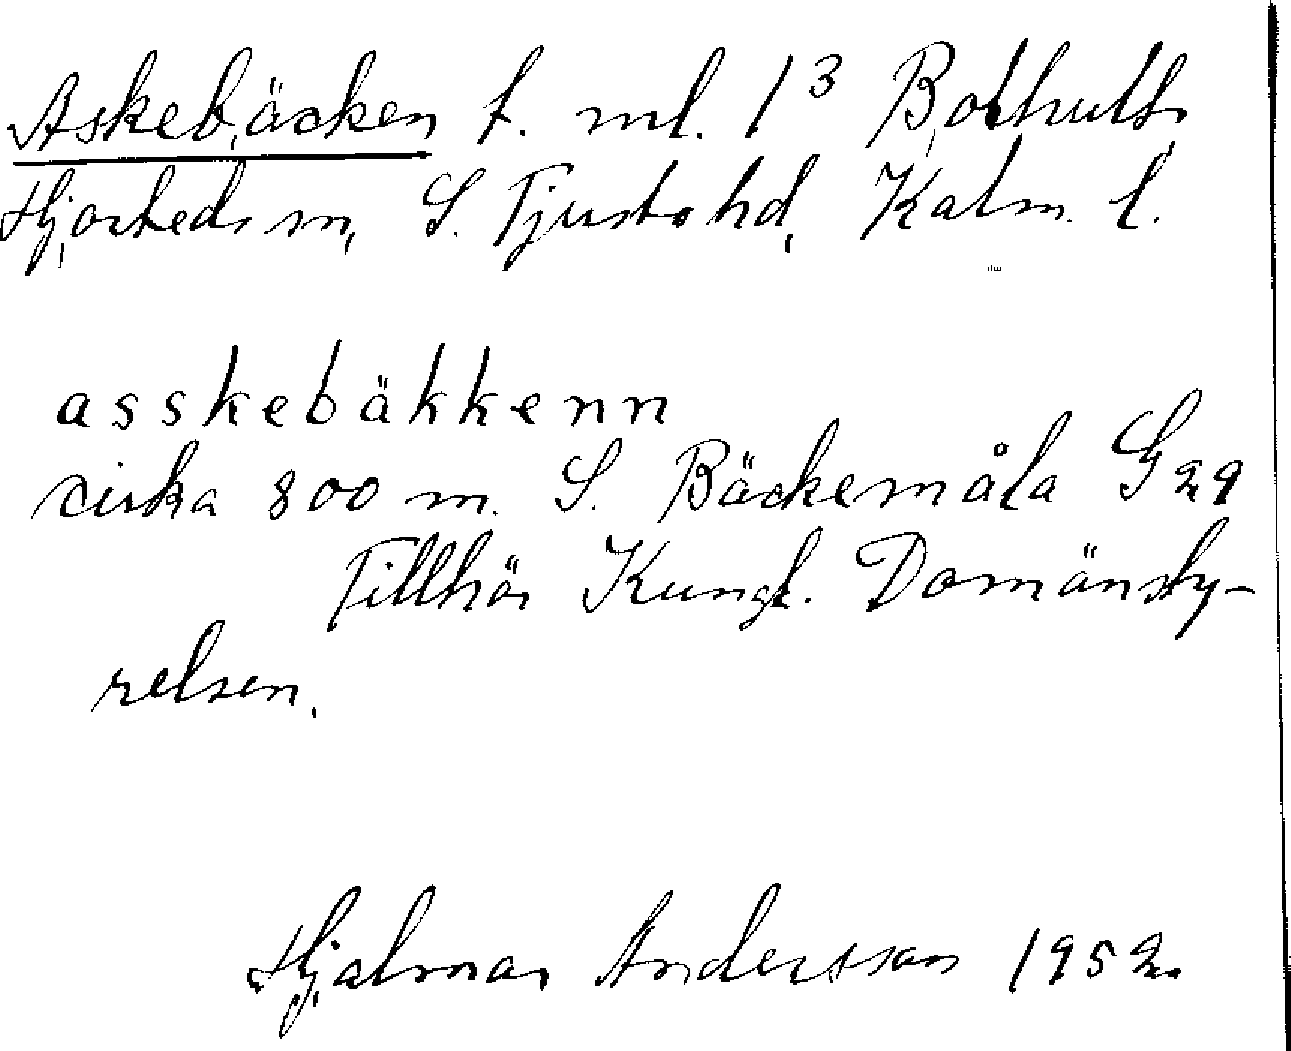 Askebäcken t. ml. 1³ Bothults
Hjorteds sn, S. Tjusts hd, Kalm. l.
asskebäkkenn
cirka 800 m. S. Bäckemåla G 29
Tillhör Kungl. Domänsty-
relsen.
Hjalmar Andersson 1952.